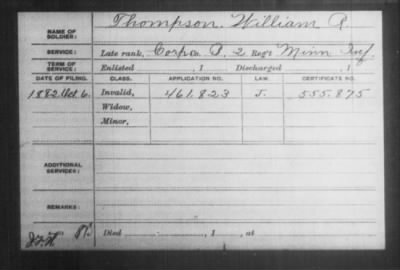 NAME OF SOLDIER: Thompson, William R.
SERVICE: Late rank, Corp Co. 2 Reg't Minn Inf.
TERM OF SERVICE: Enlisted , 1 Discharged , 1
DATE OF FILING. CLASS. APPLICATION NO. LAW. CERTIFICATE NO.
1882 Oct. 6. Invalid, 461.823 J. 555.875
Widow,
Minor,
ADDITIONAL SERVICES:
REMARKS:
Died , 1 , at